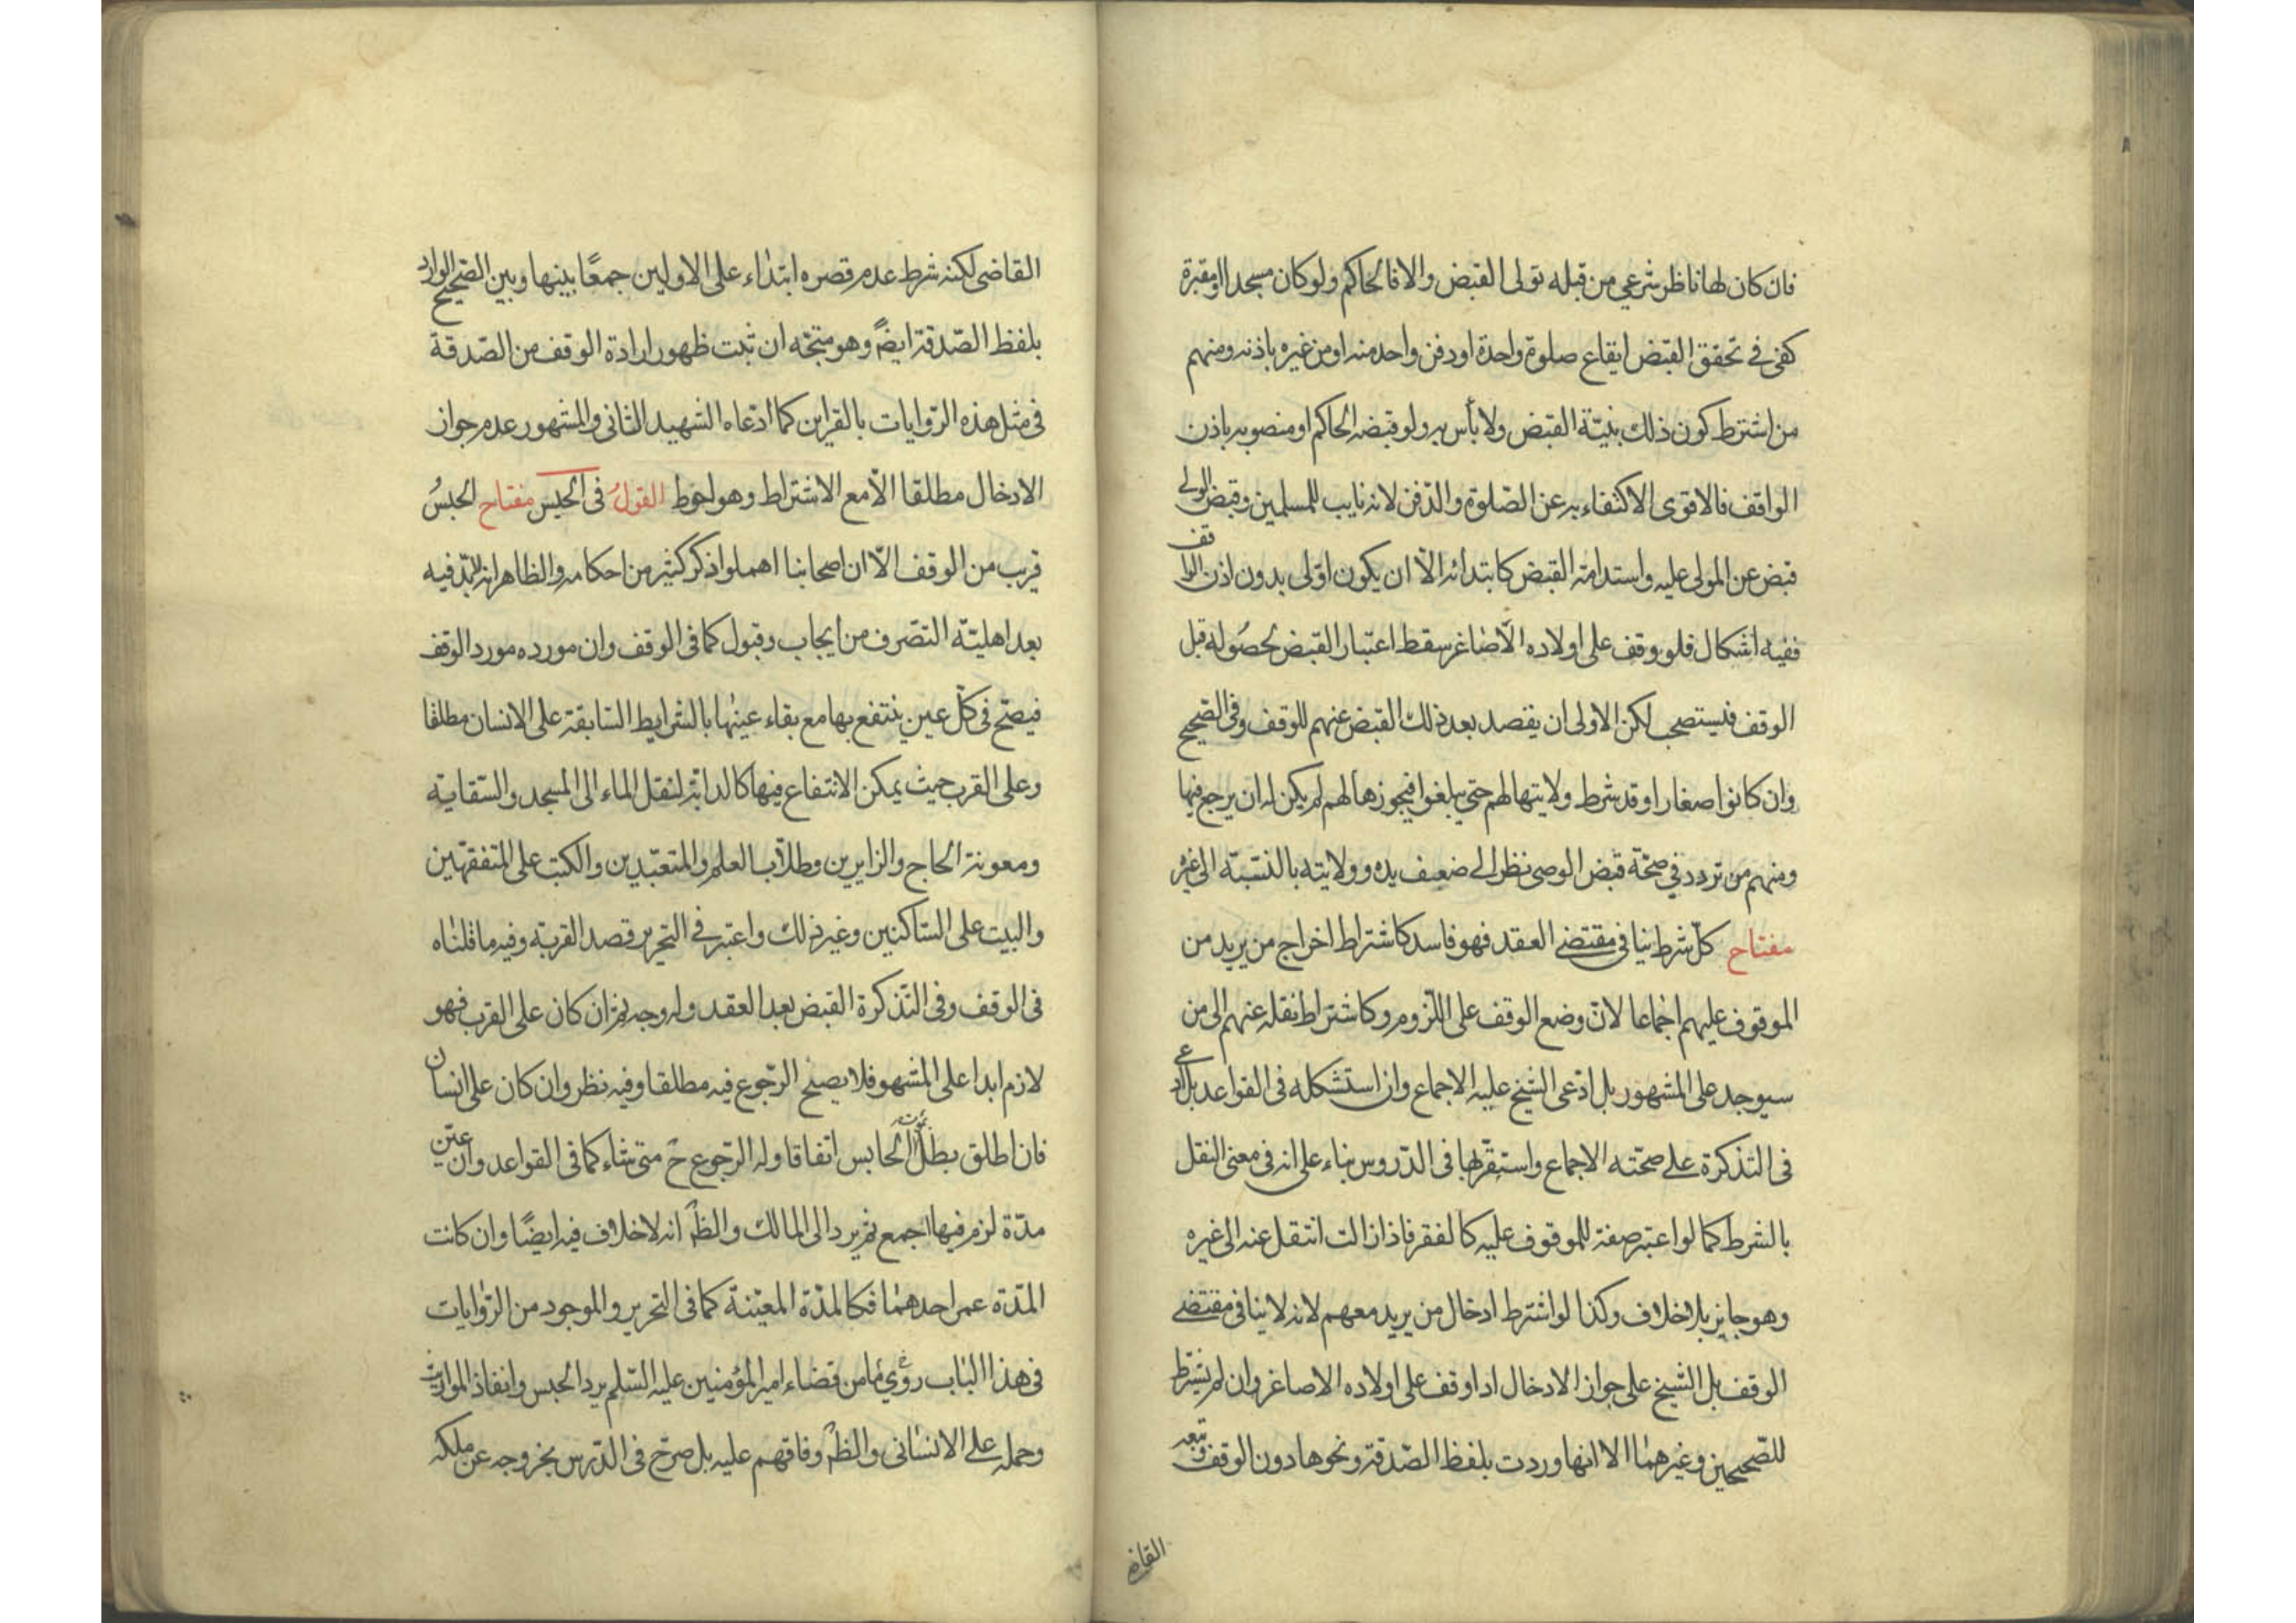 فان كان لها ناظر شرعي من قبله تولى القبض والا فالحاكم ولو كان مسجدا او مقبرة
كفى في تحقق القبض ايقاع صلوة واحدة او دفن واحد منه او من غيره باذنه ومنهم
من اشترط كون ذلك بنيّة القبض ولا بأس به ولو قبضه الحاكم او منصوبه باذن
الواقف فالاقوى الاكتفاء به عن الصّلوة والدّفن لانه نايب للمسلمين وقبض الولي
قبض عن المولى عليه واستدامة القبض كابتدائه الّا ان يكون اوّلى بدون اذن الواقف
ففيه اشكال فلو وقف على اولاده الّاصاغر سقط اعتبار القبض لحصُوله قبل
الوقف فيستصحب لكن الاولى ان يقصد بعد ذلك القبض عنهم للوقف وفى الصّحيح
وان كانوا صغارا وقد شرط ولايتها لهم حتى يبلغوا فيجوزها لهم لم يكن له ان يرجع فيها
ومنهم من تردد في صحّة قبض الوصى نظرا الى ضعف يده وولايته بالنّسبة الى غيره
مفتاح كلّ شرط ينافى مقتضى العقد فهو فاسد كاشتراط اخراج من يريد من
الموقوف عليهم اجماعا لانّ وضع الوقف على اللّزوم وكاشتراط نقله عنهم الى من
سيوجد على المشهور بل ادّعى الشيخ عليه الاجماع وان استشكله فى القواعد بل ادعى
فى التذكرة على صحّته الاجماع واستقر لها فى الدّروس بناء على انه فى معنى النقل
بالشرط كما لو اعتبر صفة للموقوف عليه كالفقر فاذا زالت انتقل عنه الى غيره
وهو جايز بلا خلاف وكذا لو اشترط ادخال من يريد معهم لانه لا ينافى مقتضى
الوقف بل الشيخ على جواز الادخال اذا وقف على اولاده الاصاغر وان لم يشترط
للصّحيحين وغيرهما الا انها وردت بلفظ الصّدقة ونحوها دون الوقف وتبعه
القاضى
القاضى لكنه شرط عدم قصره ابتداء على الاولين جمعًا بينها وبين الصّحيح الوارد
بلفظ الصّدقة ايضً وهو متجّه ان ثبت ظهور ارادة الوقف من الصّدقة
فى مثل هذه الرّوايات بالقراين كما ادّعاه الشهيد الثانى والمشهور عدم جواز
الادخال مطلقا الّا مع الاشتراط وهو احوط القولُ فى الحبس مفتاح الحبسُ
قريب من الوقف الّا ان اصحابنا اهملوا ذكر كثير من احكامه والظاهر انه لابدّ فيه
بعد اهليّة التصّرف من ايجاب وقبول كما فى الوقف وان مورده مورد الوقف
فيصحّ فى كلّ عين ينتفع بها مع بقاء عينها بالشرايط السّابقة على الانسان مطلقا
وعلى القرب حيث يمكن الانتفاع فيها كالدابّة لنقل الماء الى المسجد والسّقاية
ومعونة الحاج والزايرين وطلّاب العلم والمتعبّدين والكتب على المتفقهّين
والبيت على السّاكنين وغير ذلك واعتبر فى التحرير قصد القربة وفيه ما قلناه
فى الوقف وفى التّذكرة القبض بعد العقد وله وجه ثمّ ان كان على القرب فهو
لازم ابدا على المشهو فلا يصحّ الرّجوع فيه مطلقا وفيه نظر وان كان على انسان
فان اطلق بطل الحابس اتفاقا وله الرّجوع حٓ متى شاء كما فى القواعد وان عيّن
مدّة لزم فيها اجمع ثم يرد الى المالك والظٓ انه لا خلاف فيه ايضًا وان كانت
المدّة عمر احدهما فكالمدّة المعيّنة كما فى التحرير والموجود من الرّوايات
فى هذا الباب روى ما من قضاء امير المؤمنين عليه السّلم برد الحبس وانفاذ المواريث
وحمله على الانسانى والظٓ وفاقهم عليه بل صرّح فى الدّرس بخروجه عن ملكه